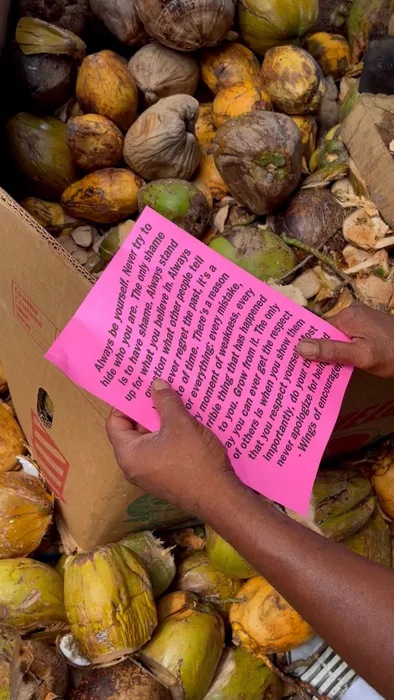 Always be yourself. Never try to
hide who you are. The only shame
is to have shame. Always stand
up for what you believe in. Always
question what other people tell
never regret the past. It's a
of time. There's a reason
for everything; every mistake,
moment of weakness, every
thing that has happened
to you. Grow from it. The only
way you can ever get the respect
of others is when you show them
that you respect yourself
Importantly, do your
never apologize for being
- Wings of